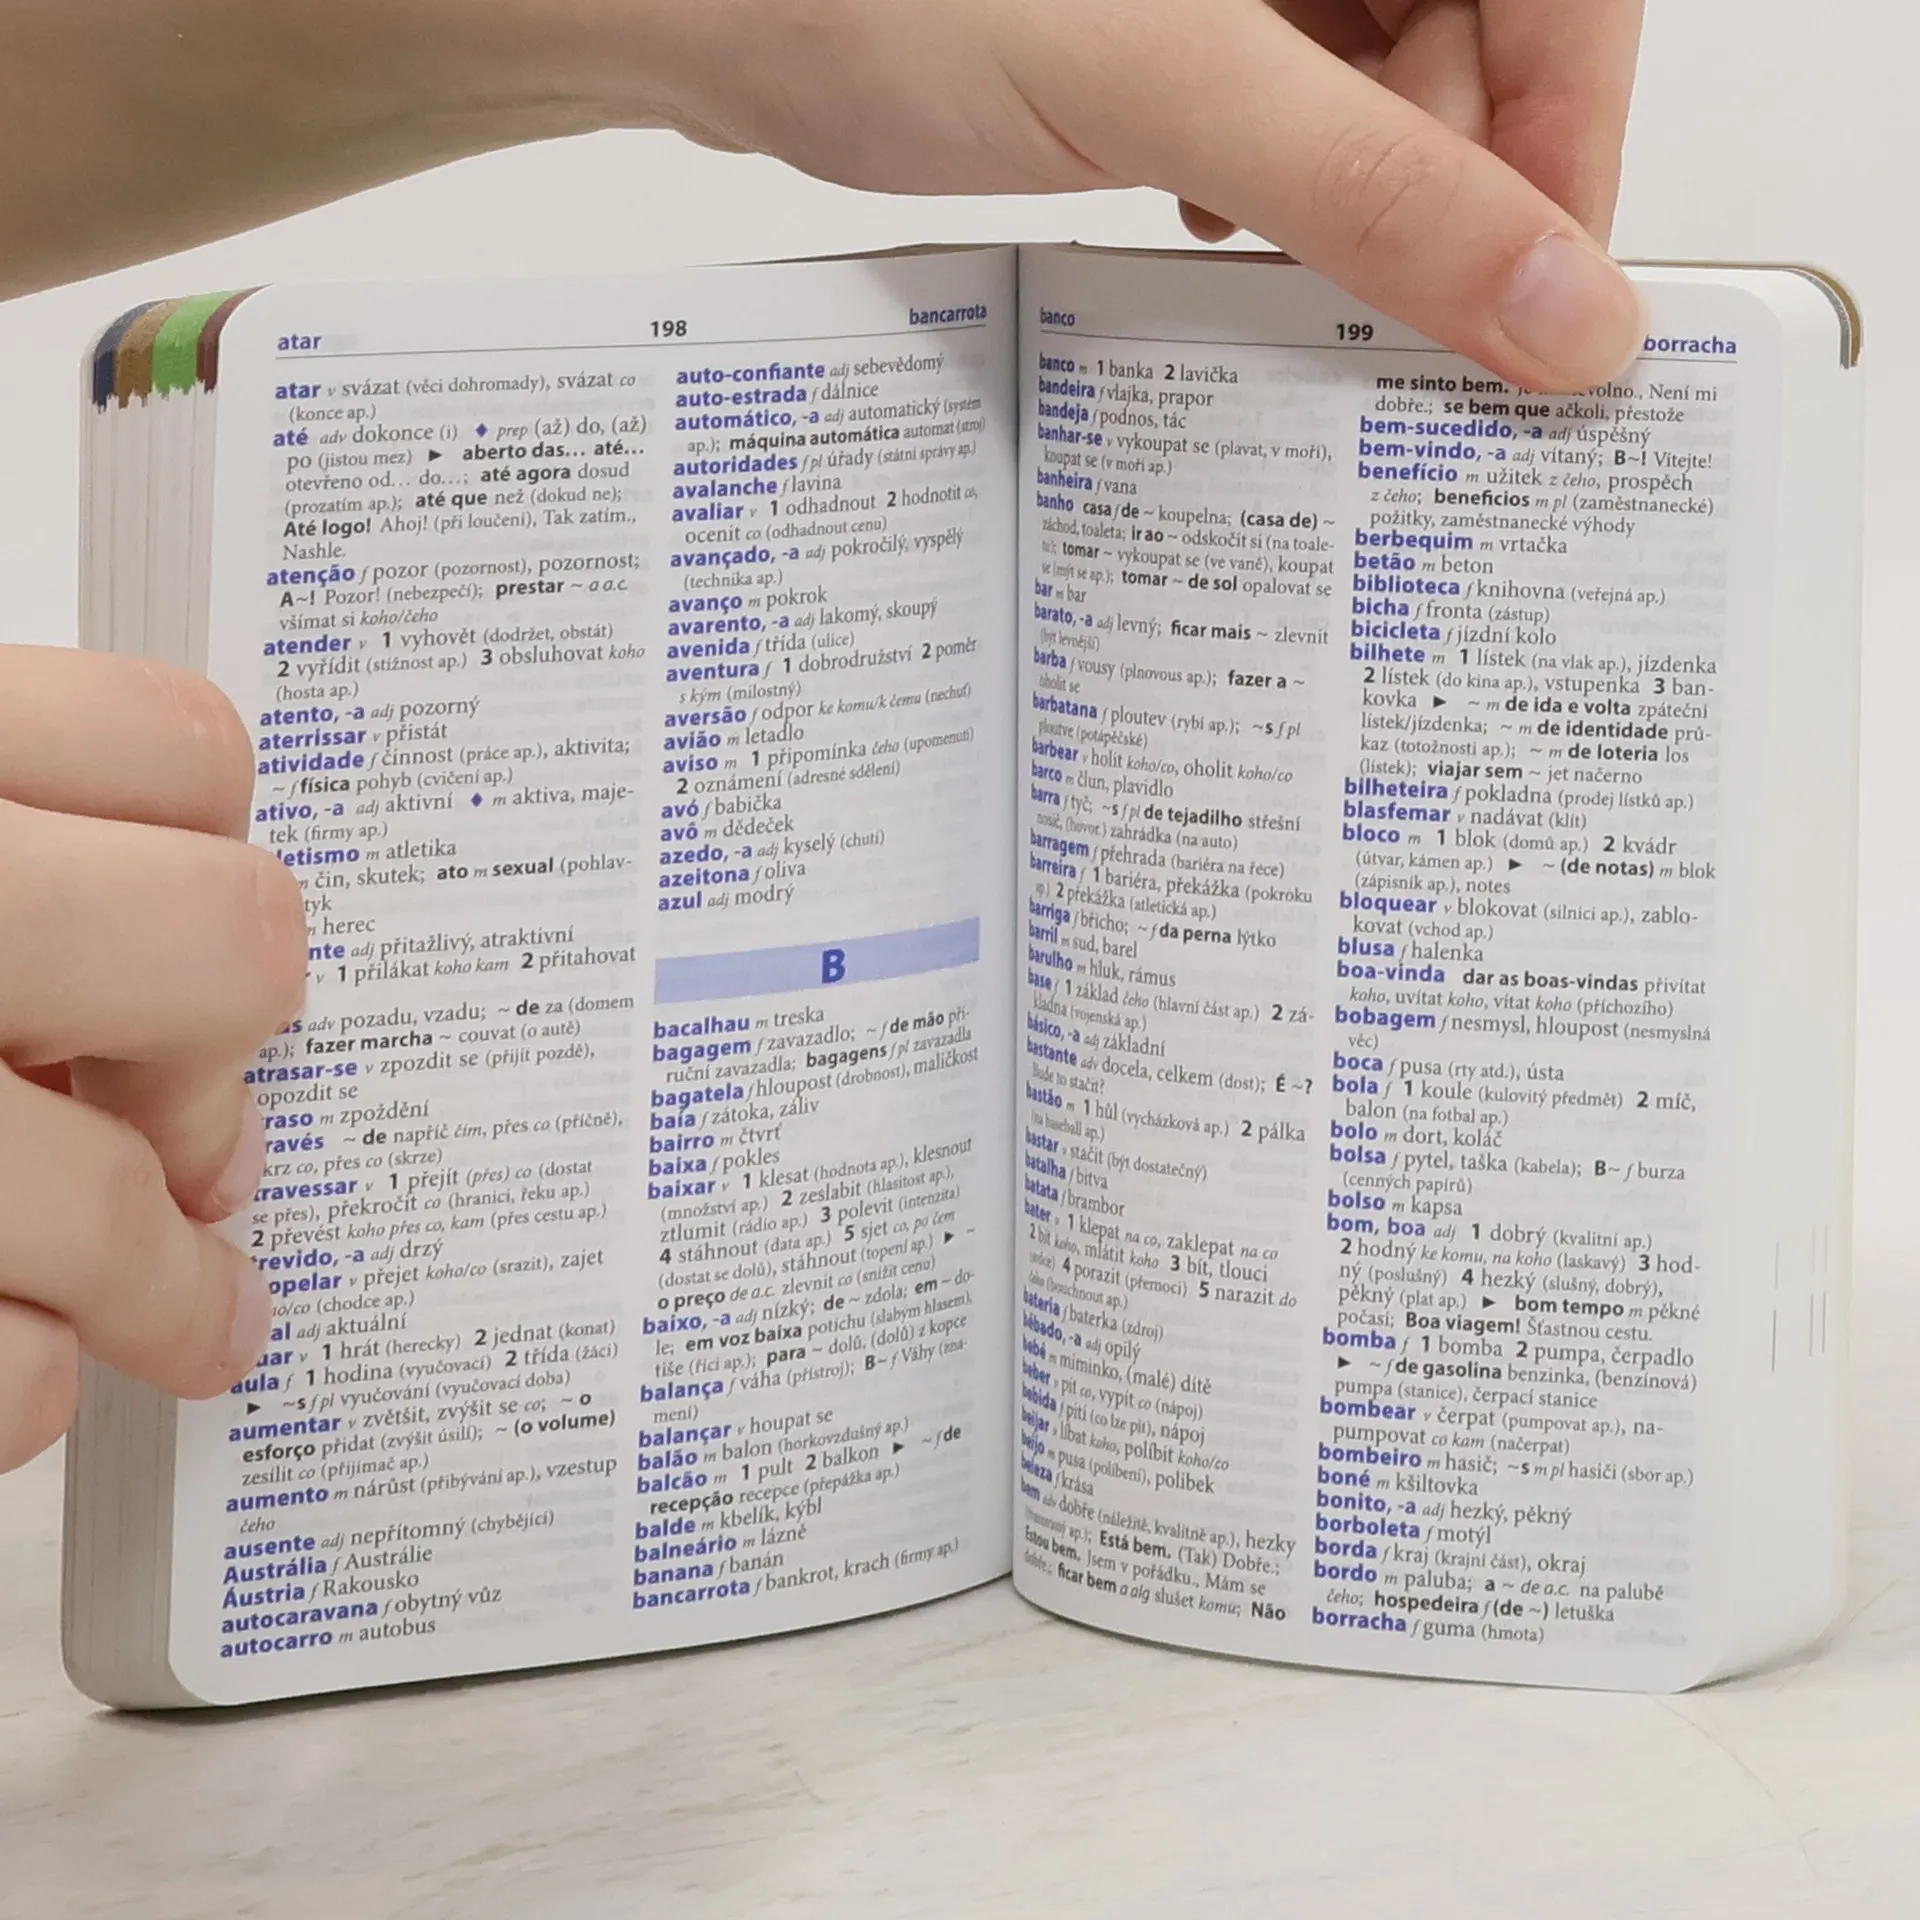 atar
198
bancarrota
atar v svázat (věci dohromady), svázat co
(konce ap.)
até adv dokonce (i) ♦ prep (až) do, (až)
po (jistou mez) ► aberto das... até...
otevřeno od... do...; até agora dosud
(prozatím ap.); até que než (dokud ne);
Até logo! Ahoj! (při loučení), Tak zatím.,
Nashle.
atenção f pozor (pozornost), pozornost;
A~! Pozor! (nebezpečí); prestar ~ a a.c.
všímat si koho/čeho
atender v 1 vyhovět (dodržet, obstát)
2 vyřídit (stížnost ap.) 3 obsluhovat koho
(hosta ap.)
atento, -a adj pozorný
aterrissar v přistát
atividade f činnost (práce ap.), aktivita;
~ f física pohyb (cvičení ap.)
ativo, -a adj aktivní ♦ m aktiva, maje-
tek (firmy ap.)
letismo m atletika
čin, skutek; ato m sexual (pohlav-
tyk
herec
nte adj přitažlivý, atraktivní
v 1 přilákat koho kam 2 přitahovat
adv pozadu, vzadu; ~ de za (domem
ap.); fazer marcha ~ couvat (o autě)
atrasar-se v zpozdit se (přijít pozdě),
opozdit se
raso m zpoždění
ravés ~ de napříč čím, přes co (příčně),
krz co, přes co (skrze)
travessar v 1 přejít (přes) co (dostat
se přes), překročit co (hranici, řeku ap.)
2 převést koho přes co, kam (přes cestu ap.)
trevido, -a adj drzý
opelar v přejet koho/co (srazit), zajet
ho/co (chodce ap.)
al adj aktuální
uar v 1 hrát (herecky) 2 jednat (konat)
aula f 1 hodina (vyučovací) 2 třída (žáci)
► ~s f pl vyučování (vyučovací doba)
aumentar v zvětšit, zvýšit se co; ~ o
esforço přidat (zvýšit úsilí); ~ (o volume)
zesílit co (přijímač ap.)
aumento m nárůst (přibývání ap.), vzestup
čeho
ausente adj nepřítomný (chybějící)
Austrália f Austrálie
Áustria f Rakousko
autocaravana f obytný vůz
autocarro m autobus
auto-confiante adj sebevědomý
auto-estrada f dálnice
automático, -a adj automatický (systém
ap.); máquina automática automat (stroj)
autoridades f pl úřady (státní správy ap.)
avalanche f lavina
avaliar v 1 odhadnout 2 hodnotit co,
ocenit co (odhadnout cenu)
avançado, -a adj pokročilý, vyspělý
(technika ap.)
avanço m pokrok
avarento, -a adj lakomý, skoupý
avenida f třída (ulice)
aventura f 1 dobrodružství 2 poměr
s kým (milostný)
aversão f odpor ke komu/k čemu (nechuť)
avião m letadlo
aviso m 1 připomínka čeho (upomenutí)
2 oznámení (adresné sdělení)
avó f babička
avô m dědeček
azedo, -a adj kyselý (chuti)
azeitona f oliva
azul adj modrý
B
bacalhau m treska
bagagem f zavazadlo; ~ f de mão pří-
ruční zavazadla; bagagens f pl zavazadla
bagatela f hloupost (drobnost), maličkost
baía f zátoka, záliv
bairro m čtvrť
baixa f pokles
baixar v 1 klesat (hodnota ap.), klesnout
(množství ap.) 2 zeslabit (hlasitost ap.),
ztlumit (rádio ap.) 3 polevit (intenzita)
4 stáhnout (data ap.) 5 sjet co, po čem
(dostat se dolů), stáhnout (topení ap.) ► ~
o preço de a.c. zlevnit co (snížit cenu)
baixo, -a adj nízký; de ~ zdola; em ~ do-
le; em voz baixa potichu (slabým hlasem),
tiše (říci ap.); para ~ dolů, (dolů) z kopce
balança f váha (přístroj); B~ f Váhy (zna-
mení)
balançar v houpat se
balão m balon (horkovzdušný ap.)
balcão m 1 pult 2 balkon ► ~ f de
recepção recepce (přepážka ap.)
balde m kbelík, kýbl
balneário m lázně
banana f banán
bancarrota f bankrot, krach (firmy ap.)
banco
199
borracha
banco m 1 banka 2 lavička
bandeira f vlajka, prapor
bandeja f podnos, tác
banhar-se v vykoupat se (plavat, v moři),
koupat se (v moři ap.)
banheira f vana
banho casa f de ~ koupelna; (casa de) ~
záchod, toaleta; ir ao ~ odskočit si (na toale-
tu); tomar ~ vykoupat se (ve vaně), koupat
se (mýt se ap.); tomar ~ de sol opalovat se
bar m bar
barato, -a adj levný; ficar mais ~ zlevnit
(být levnější)
barba f vousy (plnovous ap.); fazer a ~
oholit se
barbatana f ploutev (rybí ap.); ~s f pl
ploutve (potápěčské)
barbear v holit koho/co, oholit koho/co
barco m člun, plavidlo
barra f tyč; ~s f pl de tejadilho střešní
nosič, (hovor.) zahrádka (na auto)
barragem f přehrada (bariéra na řece)
barreira f 1 bariéra, překážka (pokroku
ap.) 2 překážka (atletická ap.)
barriga f břicho; ~ f da perna lýtko
barril m sud, barel
barulho m hluk, rámus
base f 1 základ čeho (hlavní část ap.) 2 zá-
kladna (vojenská ap.)
básico, -a adj základní
bastante adv docela, celkem (dost); É ~?
Bude to stačit?
bastão m 1 hůl (vycházková ap.) 2 pálka
(na baseball ap.)
bastar v stačit (být dostatečný)
batalha f bitva
batata f brambor
bater v 1 klepat na co, zaklepat na co
2 bít koho, mlátit koho 3 bít, tlouci
(srdce) 4 porazit (přemoci) 5 narazit do
čeho (bouchnout ap.)
bateria f baterka (zdroj)
bêbado, -a adj opilý
bebé m miminko, (malé) dítě
beber v pít co, vypít co (nápoj)
bebida f pití (co lze pít), nápoj
beijar v líbat koho, políbit koho/co
beijo m pusa (políbení), polibek
beleza f krása
bem adv dobře (náležitě, kvalitně ap.), hezky
ap.); Está bem. (Tak) Dobře.;
Estou bem. Jsem v pořádku., Mám se
dobře.; ficar bem a alg slušet komu; Não
me sinto bem. volno., Není mi
dobře.; se bem que ačkoli, přestože
bem-sucedido, -a adj úspěšný
bem-vindo, -a adj vítaný; B~! Vítejte!
benefício m užitek z čeho, prospěch
z čeho; benefícios m pl (zaměstnanecké)
požitky, zaměstnanecké výhody
berbequim m vrtačka
betão m beton
biblioteca f knihovna (veřejná ap.)
bicha f fronta (zástup)
bicicleta f jízdní kolo
bilhete m 1 lístek (na vlak ap.), jízdenka
2 lístek (do kina ap.), vstupenka 3 ban-
kovka ► ~ m de ida e volta zpáteční
lístek/jízdenka; ~ m de identidade prů-
kaz (totožnosti ap.); ~ m de loteria los
(lístek); viajar sem ~ jet načerno
bilheteira f pokladna (prodej lístků ap.)
blasfemar v nadávat (klít)
bloco m 1 blok (domů ap.) 2 kvádr
(útvar, kámen ap.) ► ~ (de notas) m blok
(zápisník ap.), notes
bloquear v blokovat (silnici ap.), zablo-
kovat (vchod ap.)
blusa f halenka
boa-vinda dar as boas-vindas přivítat
koho, uvítat koho, vítat koho (příchozího)
bobagem f nesmysl, hloupost (nesmyslná
věc)
boca f pusa (rty atd.), ústa
bola f 1 koule (kulovitý předmět) 2 míč,
balon (na fotbal ap.)
bolo m dort, koláč
bolsa f pytel, taška (kabela); B~ f burza
(cenných papírů)
bolso m kapsa
bom, boa adj 1 dobrý (kvalitní ap.)
2 hodný ke komu, na koho (laskavý) 3 hod-
ný (poslušný) 4 hezký (slušný, dobrý),
pěkný (plat ap.) ► bom tempo m pěkné
počasí; Boa viagem! Šťastnou cestu.
bomba f 1 bomba 2 pumpa, čerpadlo
► ~ f de gasolina benzinka, (benzínová)
pumpa (stanice), čerpací stanice
bombear v čerpat (pumpovat ap.), na-
pumpovat co kam (načerpat)
bombeiro m hasič; ~s m pl hasiči (sbor ap.)
boné m kšiltovka
bonito, -a adj hezký, pěkný
borboleta f motýl
borda f kraj (krajní část), okraj
bordo m paluba; a ~ de a.c. na palubě
čeho; hospedeira f (de ~) letuška
borracha f guma (hmota)